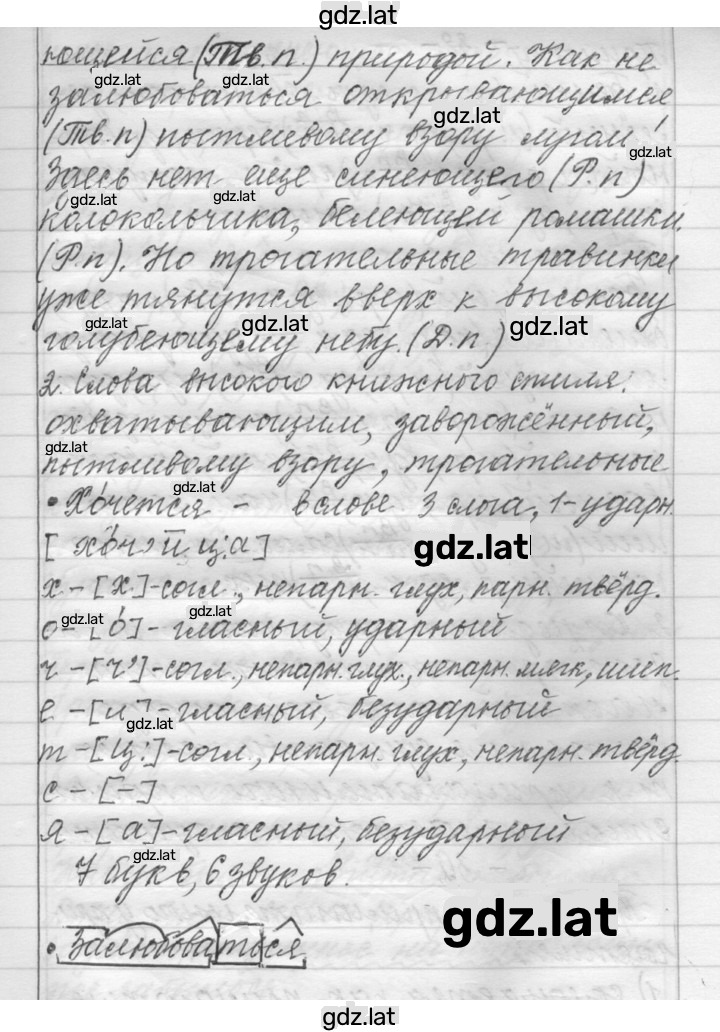 gdz.lat
ющейся (Тв. п.) природой. Как не
gdz.lat gdz.lat
залюбоваться открывающимся
gdz.lat
(Тв. п) пытливому взору миром!
gdz.lat
Здесь нет еще синеющего (Р. п)
gdz.lat gdz.lat
колокольчика, белеющей ромашки.
(Р. п). Но трогательные травинки
уже тянутся вверх к высокому
gdz.lat gdz.lat gdz.lat
голубеющему небу. (Д. п.)
2. Слова высокого книжного стиля:
охватывающим, заворожённый,
gdz.lat
пытливому взору, трогательные
gdz.lat
• Хо́чется – в слове 3 слога, 1-ударн.
[хо́ч’иц:а]
gdz.lat
х – [х]-согл., непарн. глух, парн. твёрд.
gdz.lat gdz.lat
о – [о́] - гласный, ударный
ч – [ч’]-согл., непарн. глух., непарн. мягк., шип.
е – [и]-гласный, безударный
gdz.lat
т – [ц:]-согл., непарн. глух, непарн. твёрд.
с – [–]
я – [а]-гласный, безударный
gdz.lat
7 букв, 6 звуков.
gdz.lat
• Залюбоваться
gdz.lat